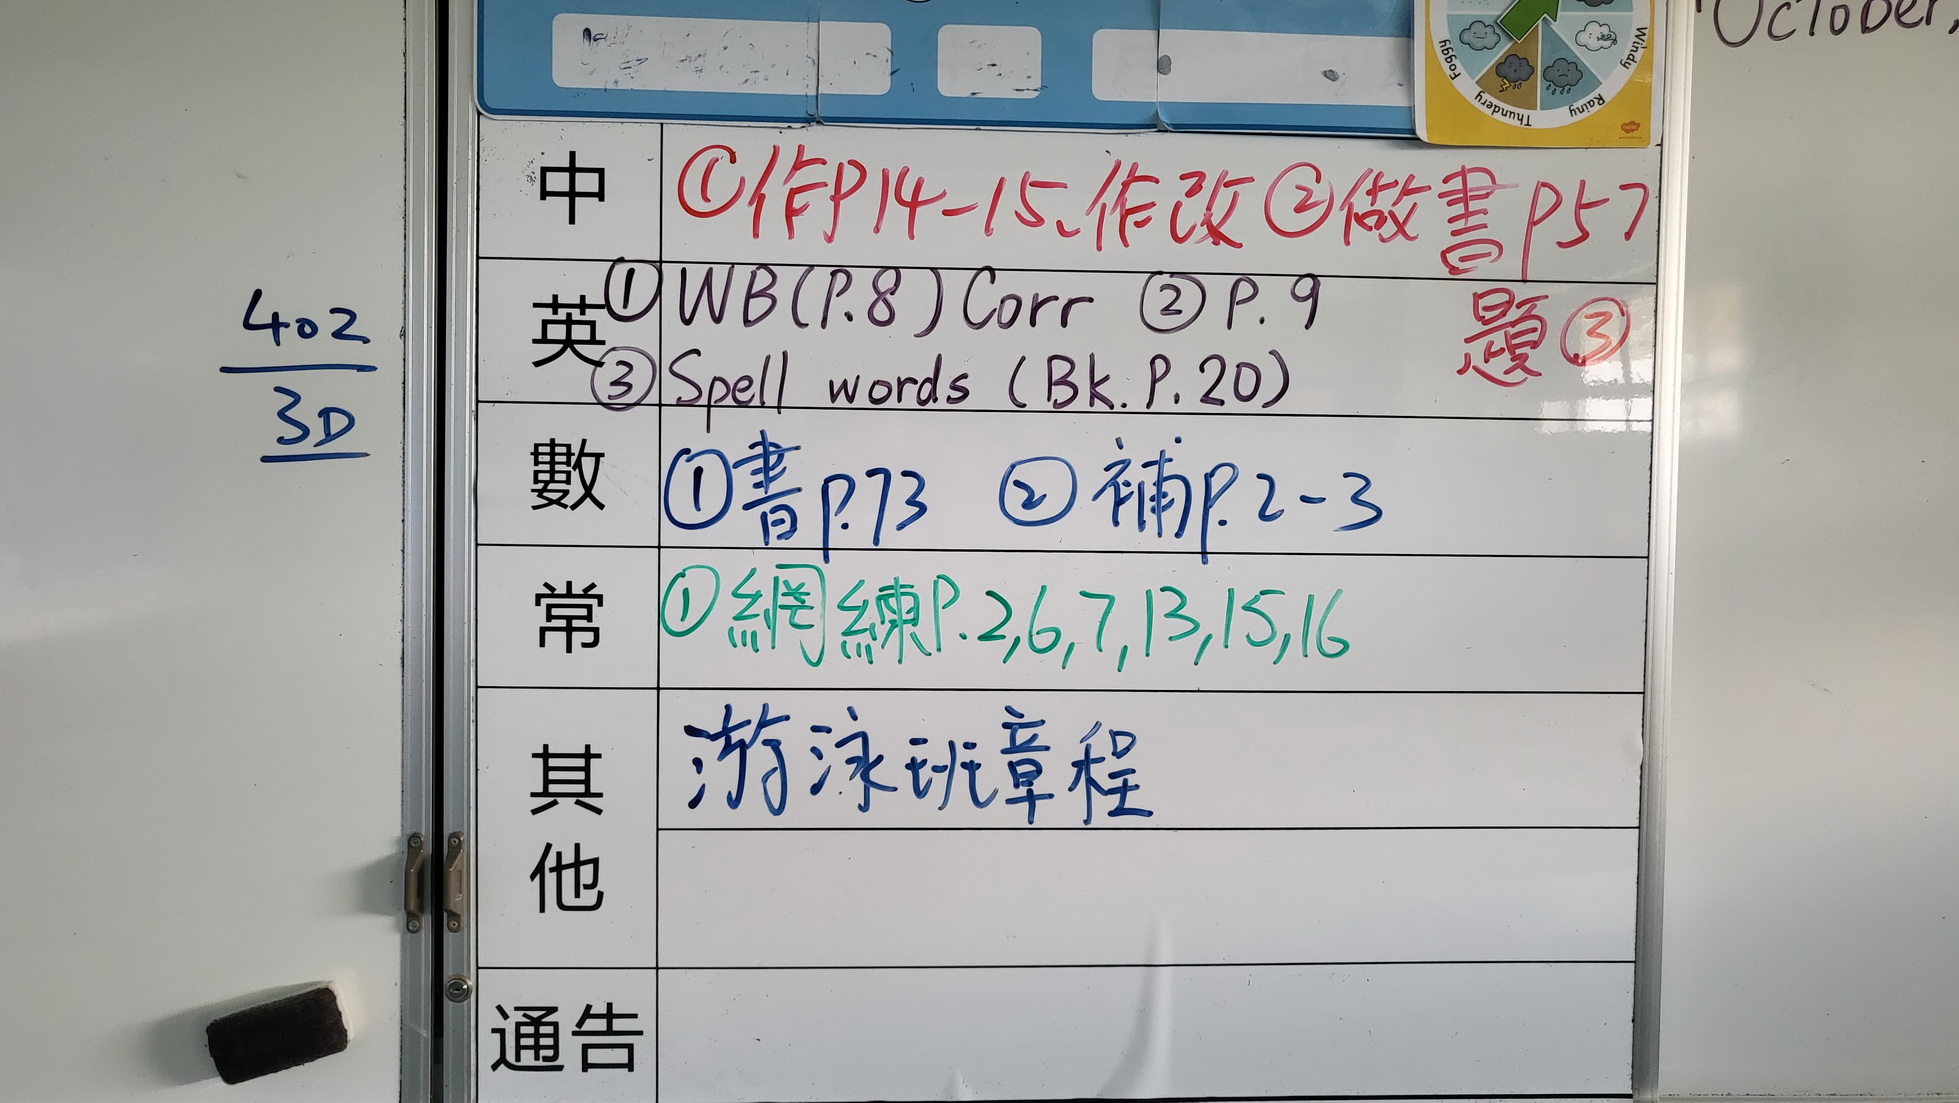 October,
Foggy
Thundery
Rainy
Windy
中 ①作P14-15、作改②做書p57
題③
英 ①WB(P.8) Corr ②P.9
③Spell words (Bk.P.20)
402
3D
數 ①書p.73 ②補p.2-3
常 ①網練P.2,6,7,13,15,16
其他 游泳班章程
通告